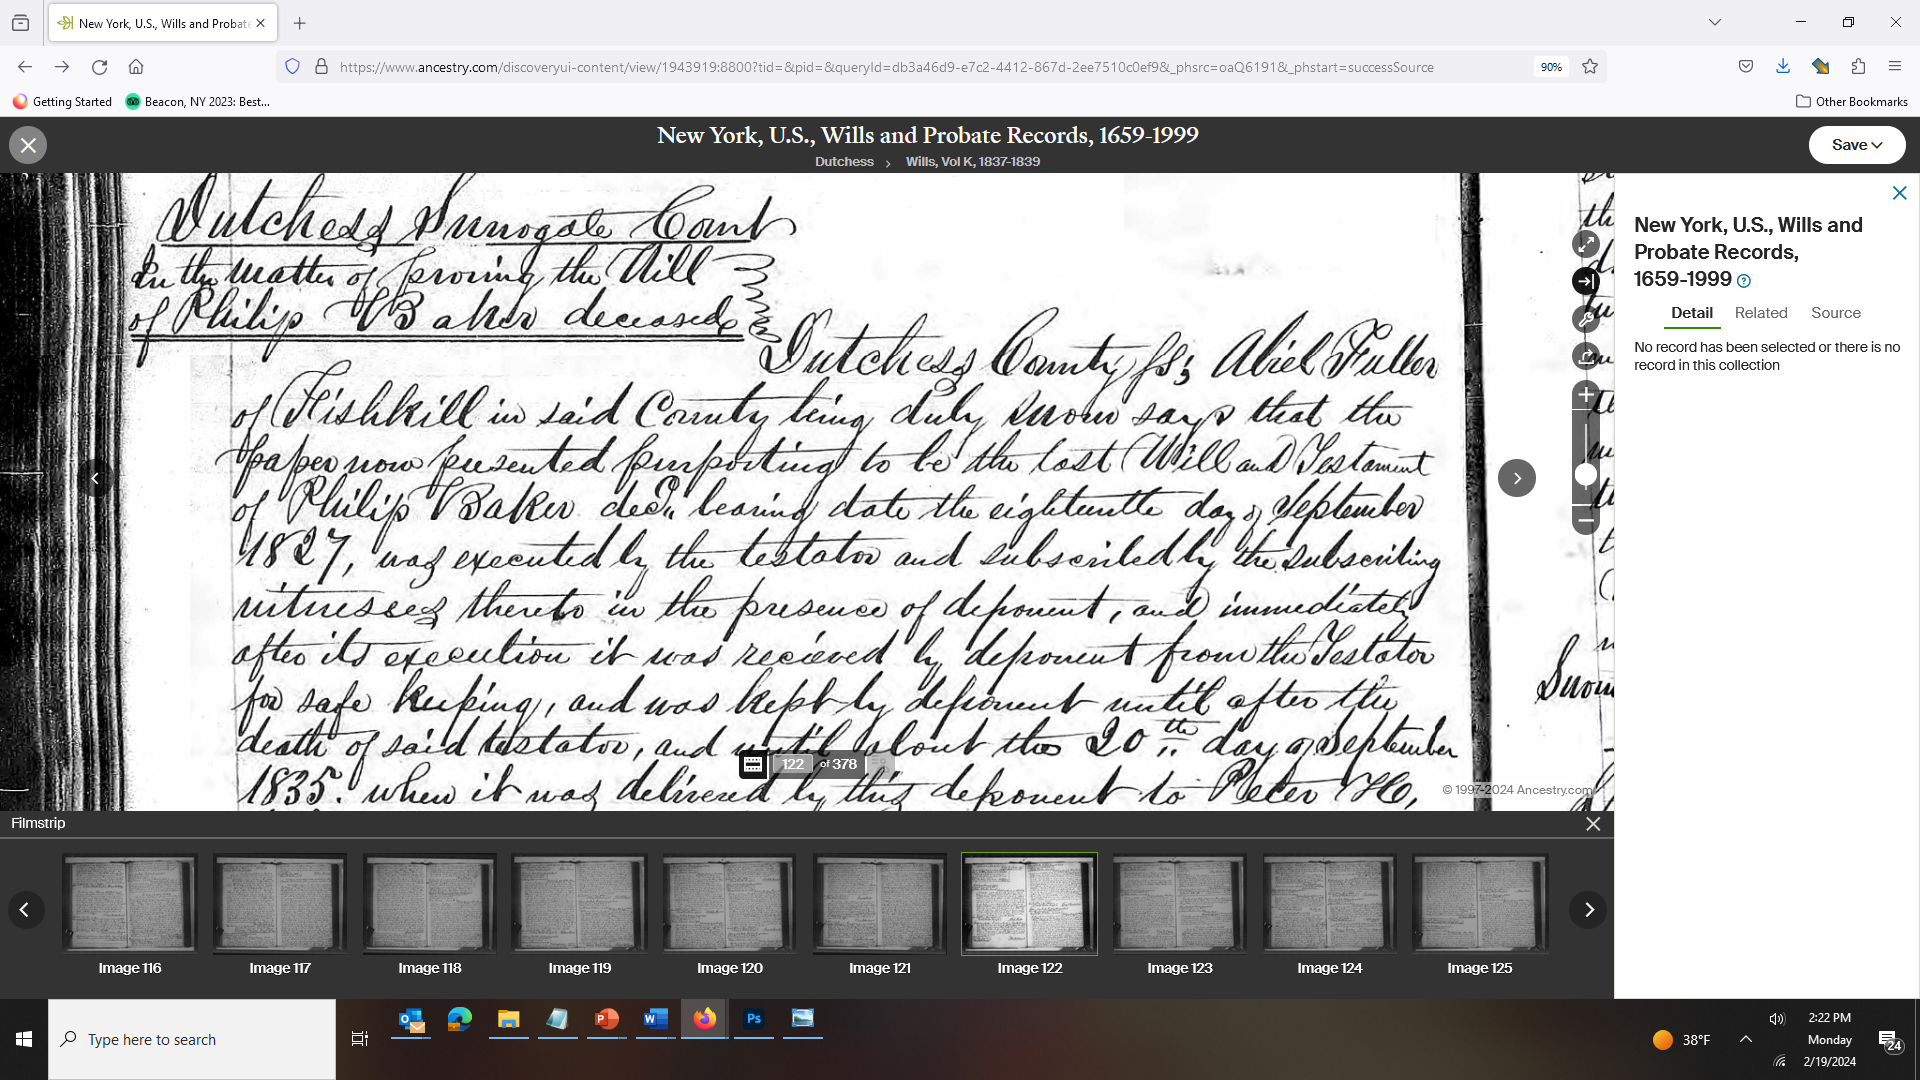 New York, U.S., Wills and Probate
https://www.ancestry.com/discoveryui-content/view/1943919:8800?tid=&pid=&queryId=db3a46d9-e7c2-4412-867d-2ee7510c0ef9&_phsrc=oaQ6191&_phstart=successSource
90%
Getting Started
Beacon, NY 2023: Best...
Other Bookmarks
New York, U.S., Wills and Probate Records, 1659-1999
Dutchess > Wills, Vol K, 1837-1839
Save
Dutchess Surrogate Court
In the matter of proving the Will
of Philip Baker deceased
Dutchess County ss; Abiel Fuller
of Fishkill in said County being duly sworn says that the
paper now presented purporting to be the last Will and Testament
of Philip Baker decd., bearing date the eighteenth day of September
1827, was executed by the testator and subscribed by the subscribing
witnesses thereto in the presence of deponent, and immediately
after its execution it was recieved by deponent from the Testator
for safe keeping, and was kept by deponent until after the
death of said testator, and until about the 20th day of September
1835. when it was delivered by this deponent to Peter H,
122 of 378
© 1997-2024 Ancestry.com
New York, U.S., Wills and
Probate Records,
1659-1999
Detail Related Source
No record has been selected or there is no
record in this collection
Filmstrip
Image 116
Image 117
Image 118
Image 119
Image 120
Image 121
Image 122
Image 123
Image 124
Image 125
Type here to search
38°F
2:22 PM
Monday
2/19/2024
24